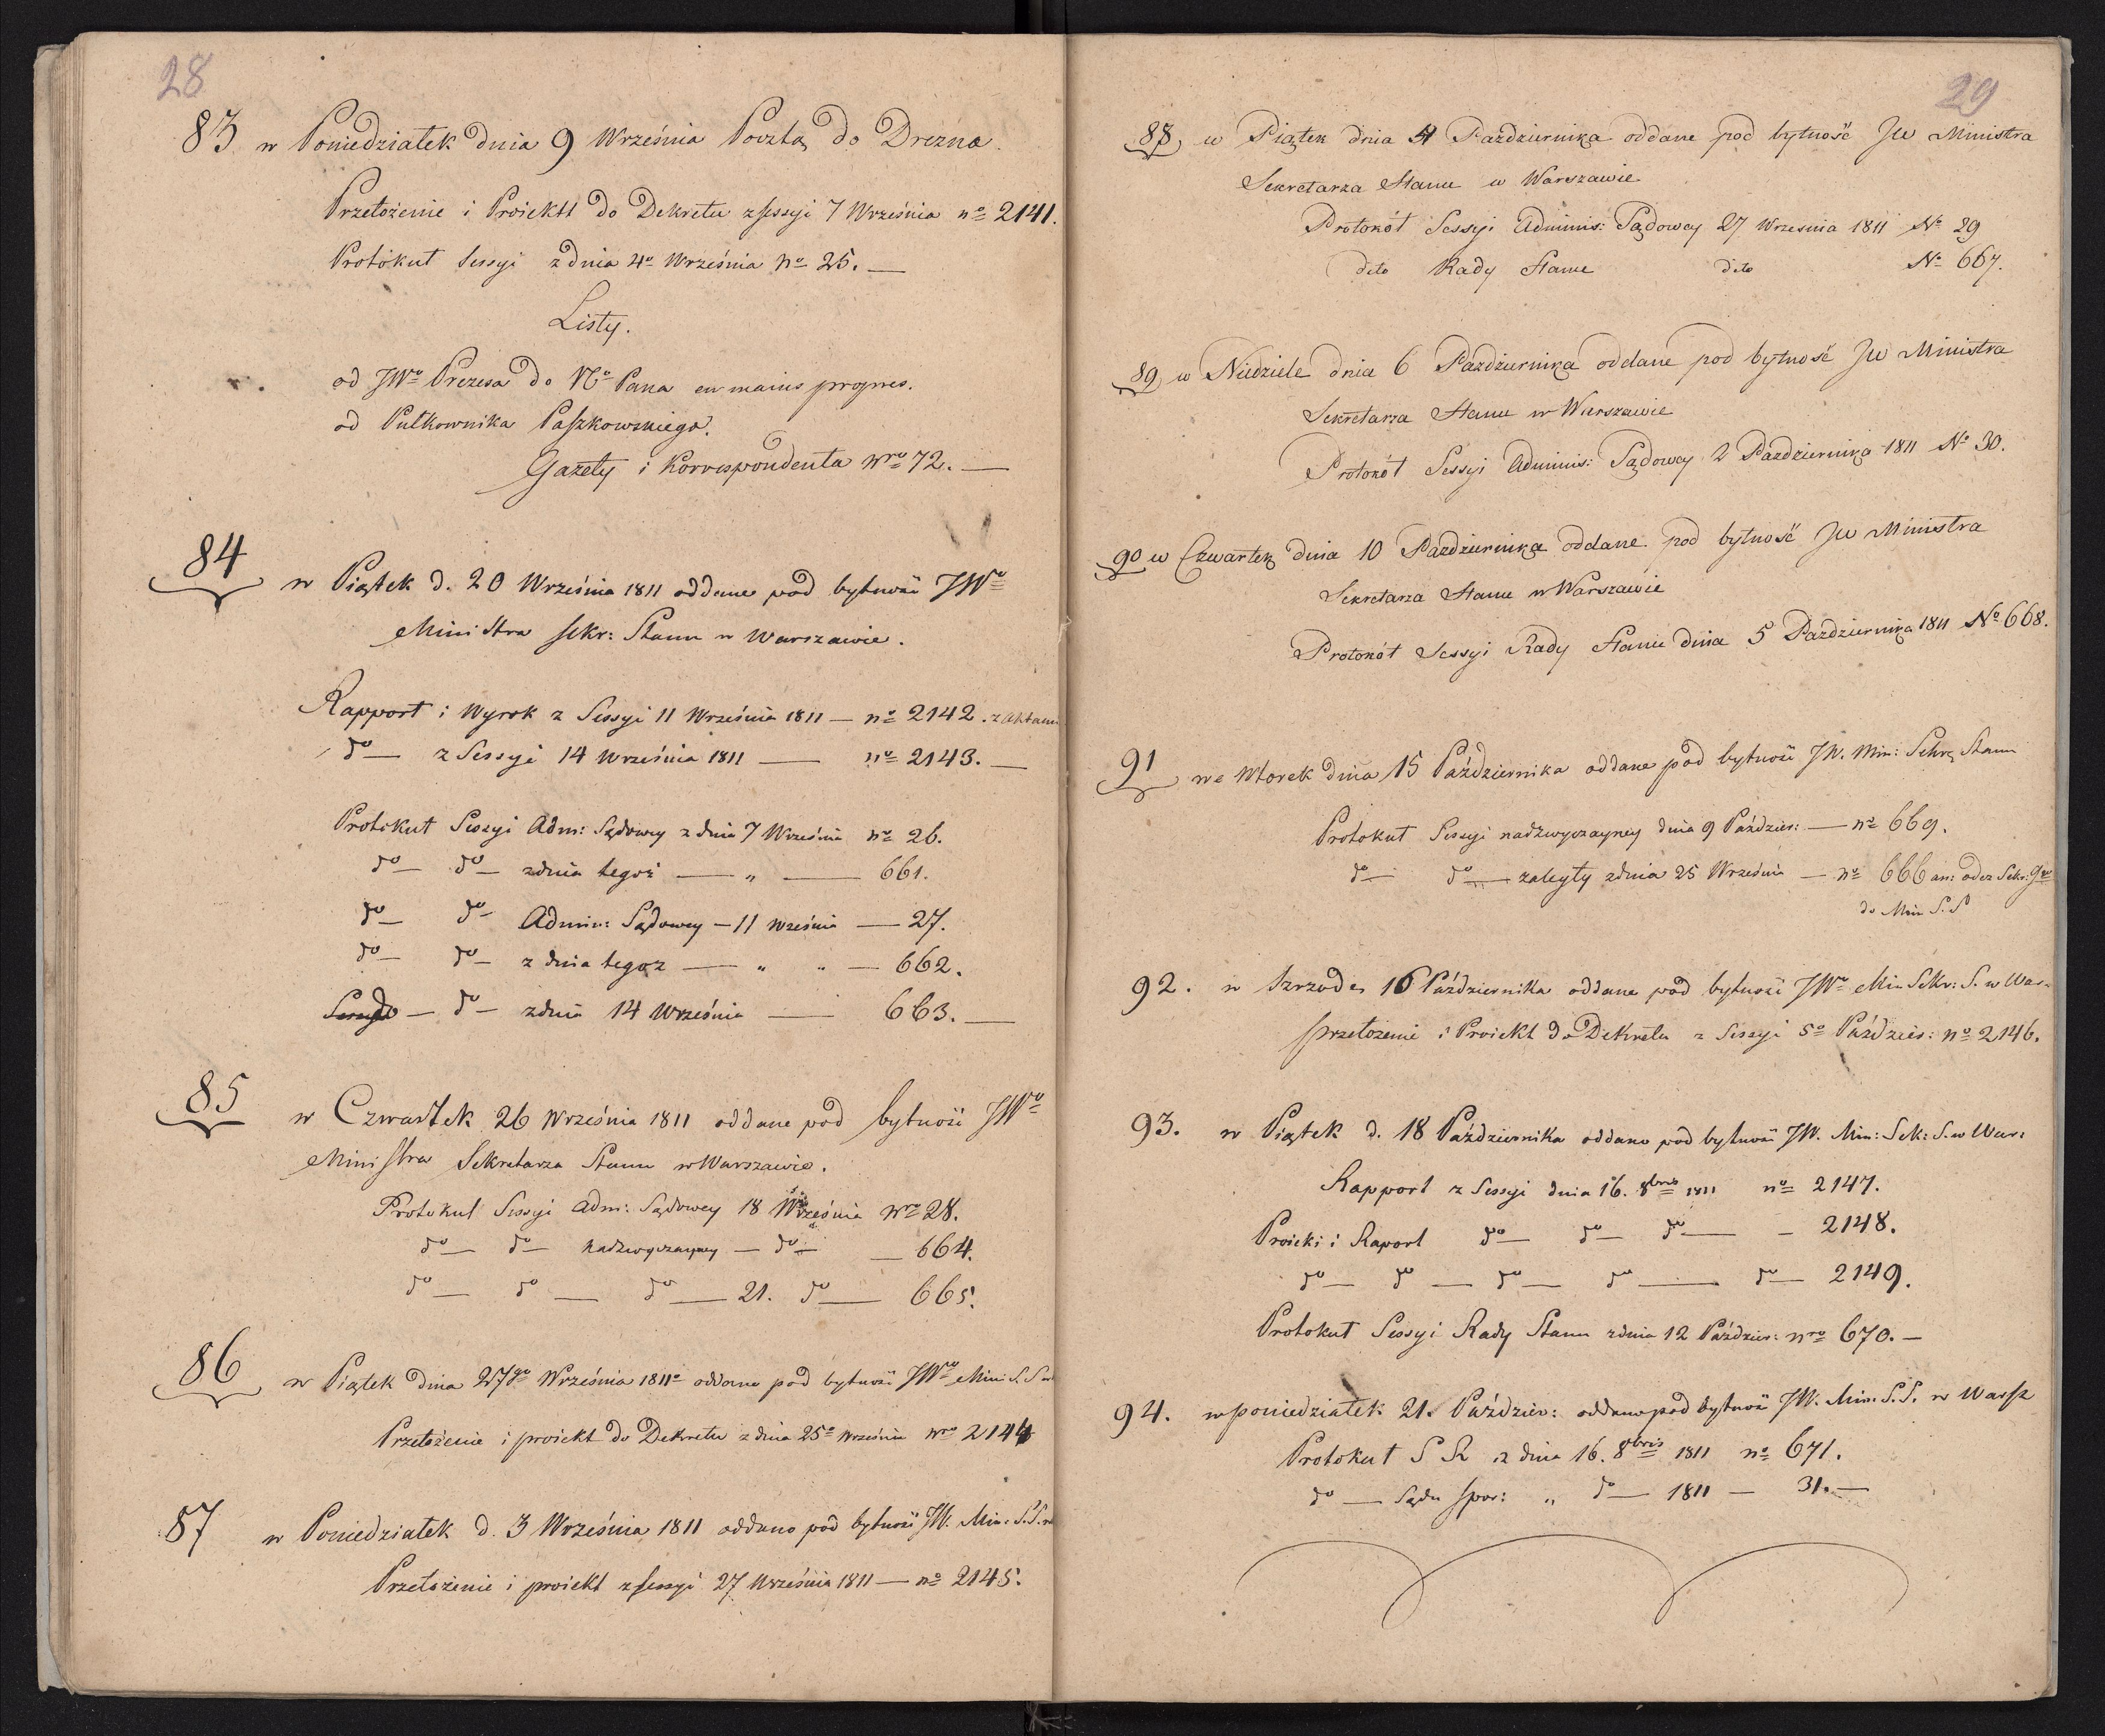 28
83 w Poniedziałek dnia 9 Września Pocztą do Drezna.
Przełożenie i Proiekt do Dekretu z sessyi 7 Września no 2141.
Protókuł Sessyi z dnia 4o Września no 25. —
Listy.
od JWo Prezesa do No Pana en mains propres.
od Pułkownika Paszkowskiego.
Gazety i Korrespondenta Nro 72. —
84
w Piątek d. 20 Września 1811 oddane pod bytność JWo
Ministra Sekr: Stanu w Warszawie.
Rapport i Wyrok z Sessyi 11 Września 1811 — no 2142. z Aktami
do — z Sessyi 14 Września 1811 — no 2143. —
Protokuł Sessyi Adm: Sądowey z dnia 7 Września no 26.
do — do — z dnia tegoż — „ — 661.
do — do — Admin: Sądowey — 11 Wrześnie — 27.
do — do — z dnia tegoz — „ „ — 662.
do — do — z dnia 14 Września — 663. —
85
w Czwartek 26 Września 1811 oddane pod bytność JWo
Ministra Sekretarza Stanu w Warszawie.
Protokuł Sessyi Adm: Sądowey 18 Września Nro 28.
do — do — Nadzwyczayney — do — — 664.
do — do — do — 21. do — 665.
86
w Piątek dnia 27go Września 1811o oddane pod bytność JWo Min: S. S. w
Przełożenie i proiekt do Dekretu z dnia 25o Września Nro 2144
87 w Poniedziałek d. 3 Września 1811 oddano pod bytność JW. Min: S. S. w
Przełożenie i proiekt z sessyi 27 Września 1811 — no 2145.
29
88 w Piątek dnia 4 Października oddane pod bytność JW Ministra
Sekretarza Stanu w Warszawie
Protokół Sessyi Adminis: Sądowey 27 Wrzesnia 1811 No 29
dito Rady Stanu dito No 667.
89 w Niedziele dnia 6 Pazdziernika oddane pod bytność JW Ministra
Sekretarza Stanu w Warszawie
Protokół Sessyi Adminis: Sądowey 2 Pazdziernika 1811 No 30.
90 w Czwartek dnia 10 Pazdziernika oddane pod bytność JW Ministra
Sekretarza Stanu w Warszawie
Protokół Sessyi Rady Stanu dnia 5 Pazdziernika 1811 No 668.
91 we Wtorek dnia 15 Października oddane pod bytność JW. Min: Sekrz Stanu
Protokuł Sessyi nadzwyczayney dnia 9 Paździer: — no 669.
do — do — zaległy z dnia 25 Września — no 666 Sekr:
do Min S. S
92. w Szrzodę 16 Października oddane pod bytność JWo Min Sekr: S. w War-
przełożenie i Proiekt do Dekretu z Sessyi 5o Paździer: no 2146.
93. w Piątek d. 18 Października oddano pod bytność JW. Min: Sek: S. w War:
Rapport z Sessyi dnia 16. 8bris 1811 no 2147.
Proiekt i Raport do — do — do — — 2148.
do — do — do — do — do — 2149.
Protokuł Sessyi Rady Stanu z dnia 12 Paździer: nro 670. —
94. w poniedziałek 21. Paździer: oddano pod bytność JW. Min. S. S. w Warsz
Protokuł S R z dnia 16. 8bris 1811 no 671.
do — Sądu spor: „ do — 1811 — 31. —